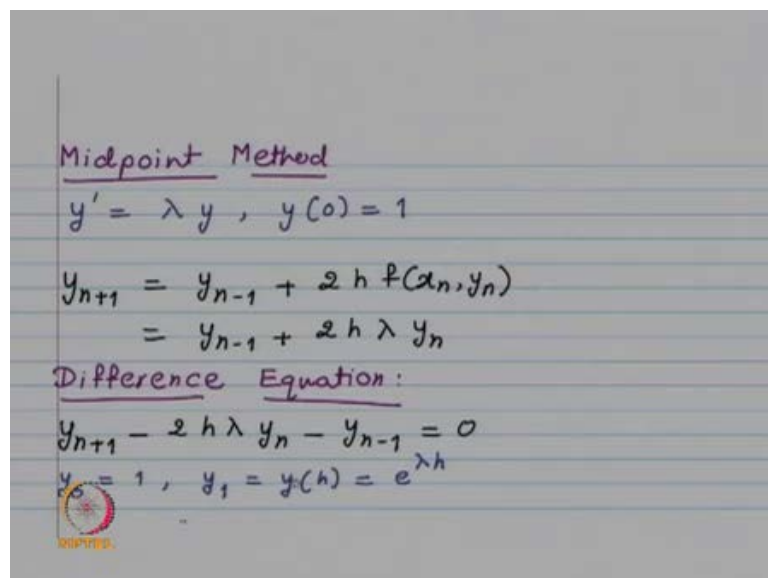 Midpoint Method
y' = λ y , y(0) = 1
yₙ₊₁ = yₙ₋₁ + 2 h f(xₙ, yₙ)
= yₙ₋₁ + 2 h λ yₙ
Difference Equation :
yₙ₊₁ − 2 h λ yₙ − yₙ₋₁ = 0
y₀ = 1 , y₁ = y(h) = e^λh